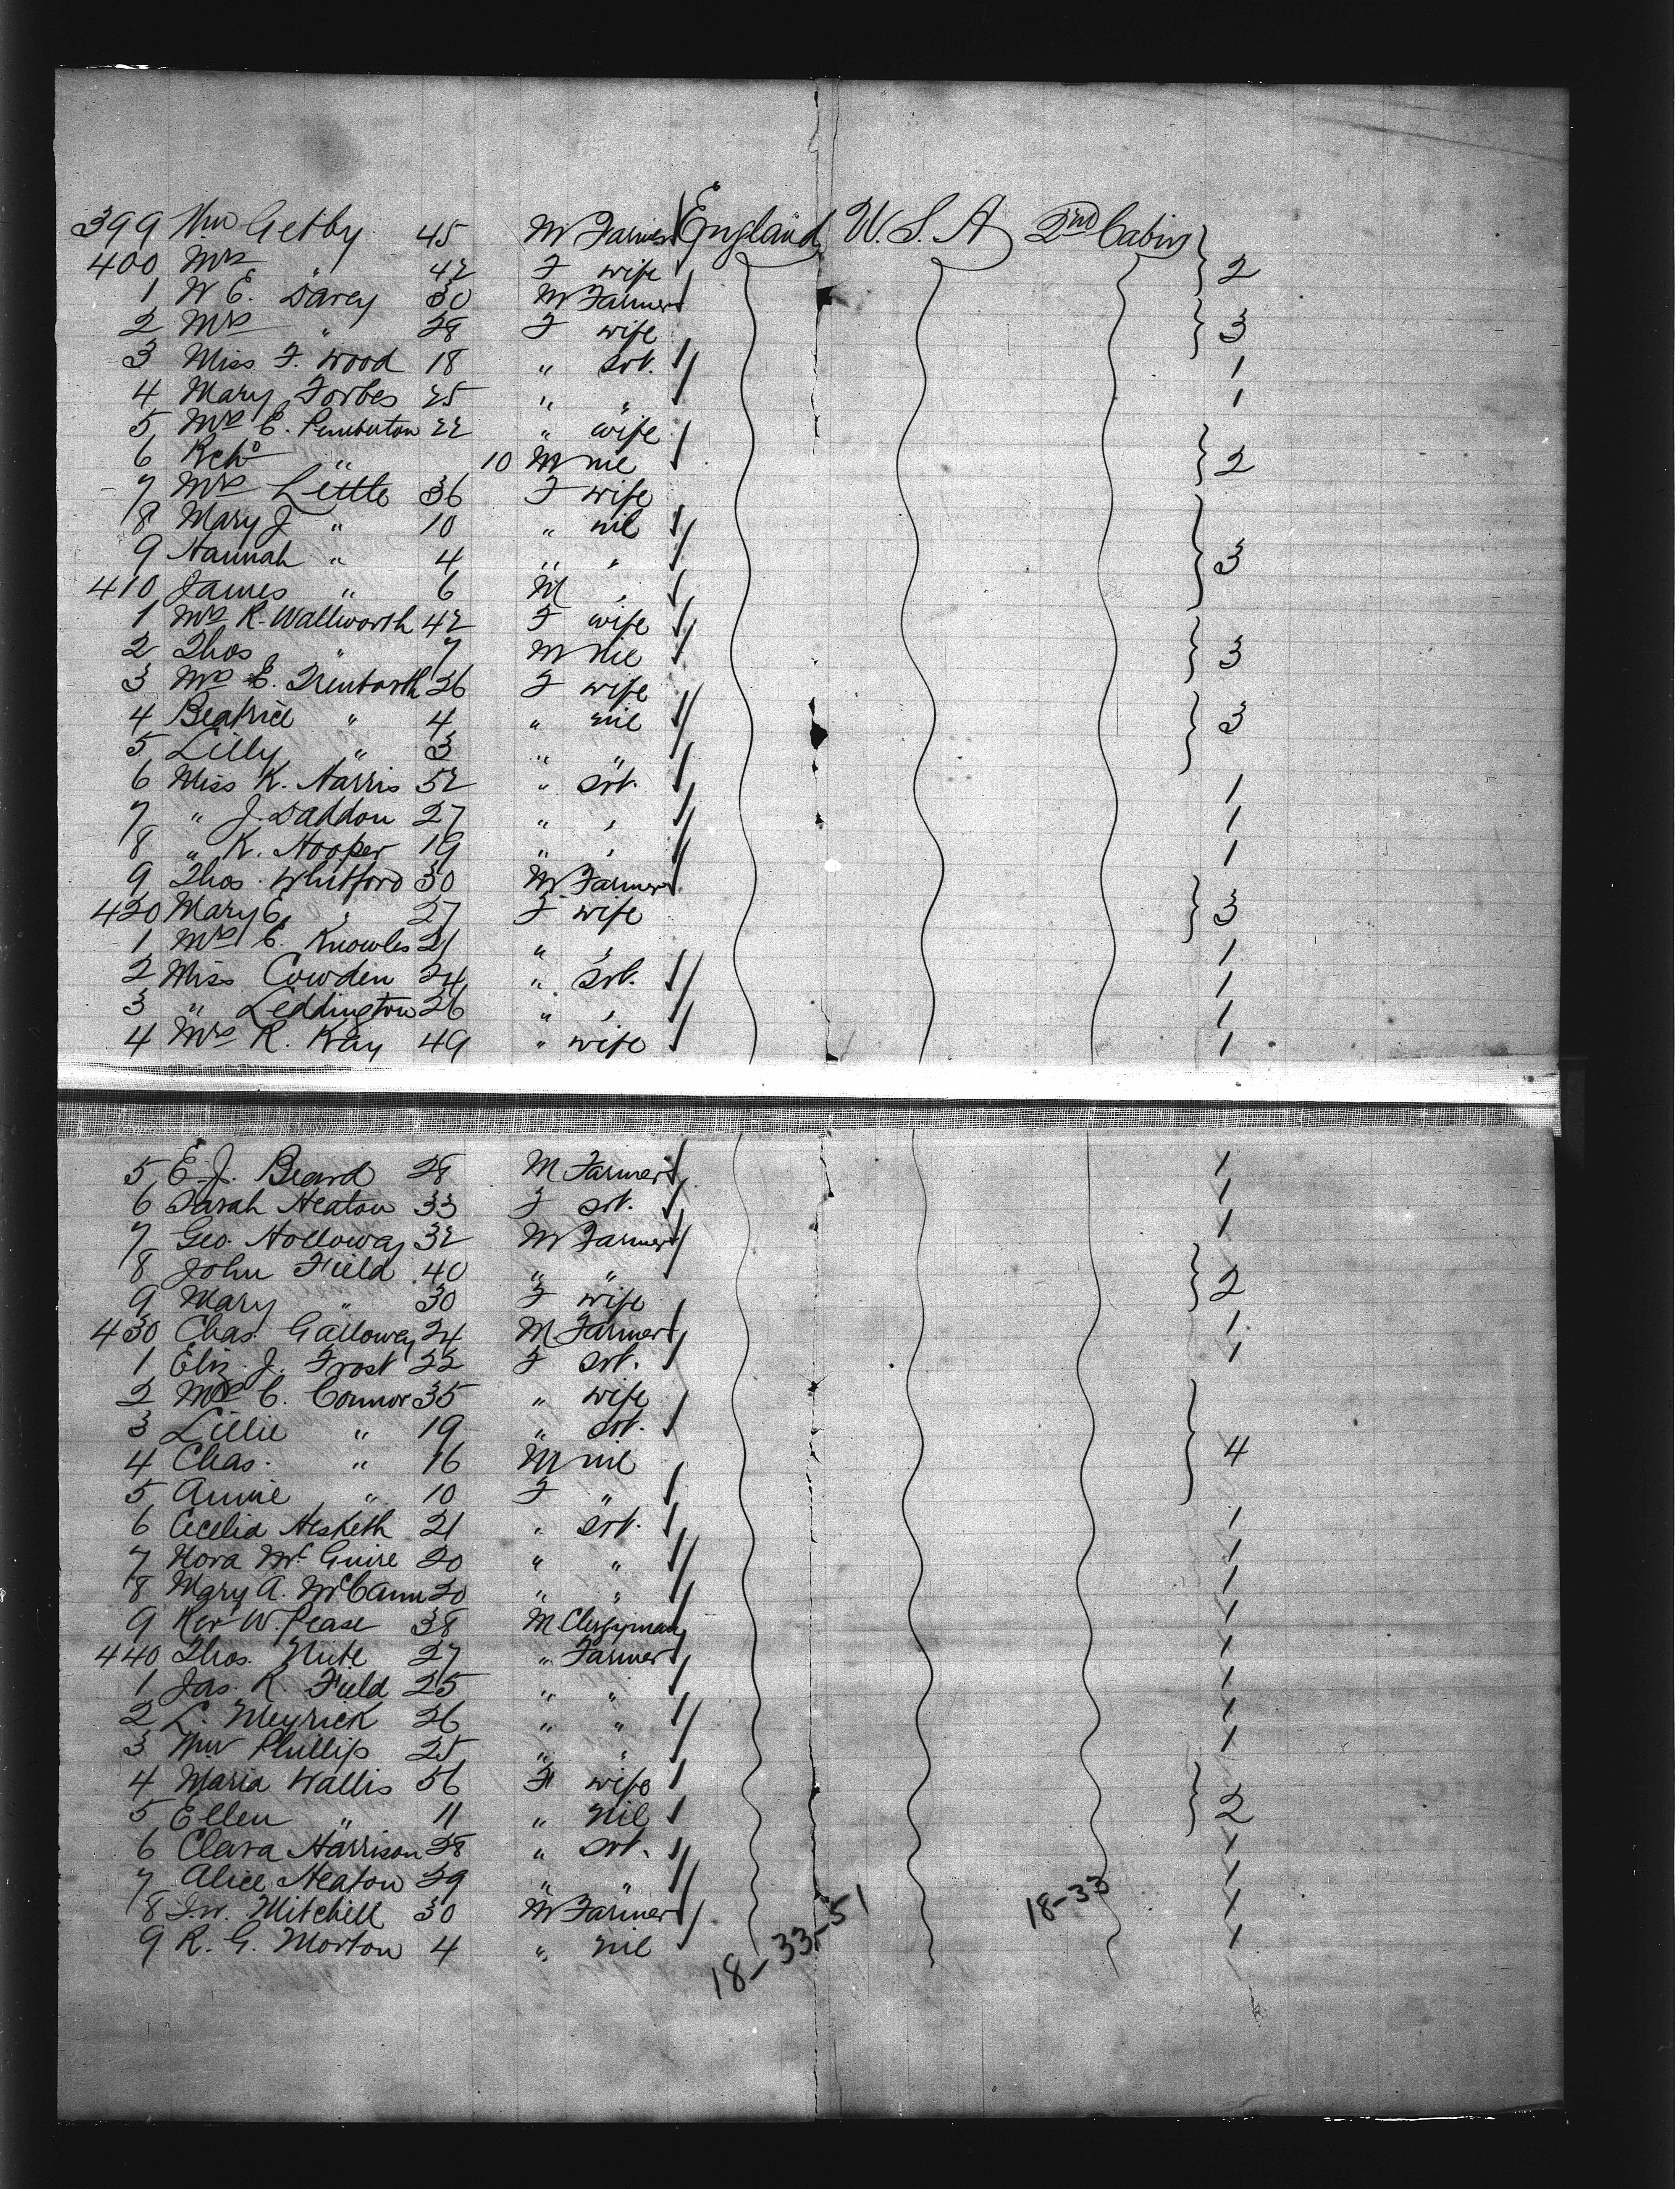 399 Wm Getby 45 M Farmer England U.S.A 2nd Cabin
400 Mrs " 42 F wife 2
1 W E. Davey 30 M Farmer
2 Mrs " 28 F wife 3
3 Miss F. Wood 18 " Srt. 1
4 Mary Forbes 25 " " 1
5 Mrs E. Pemberton 22 " wife
6 Richd " 10 M nil 2
7 Mrs Little 36 F wife
8 Mary J " 10 " nil
9 Hannah " 4 " " 3
410 James " 6 M "
1 Mrs R. Wallworth 42 F wife
2 Thos " 7 M nil 3
3 Mrs E. Trenbarth 26 F wife
4 Beatrice " 4 " nil 3
5 Lilly " 3 " "
6 Miss K. Harris 52 " Srt. 1
7 " J. Daddon 27 " " 1
8 " K. Hooper 19 " " 1
9 Thos. Whitford 30 M Farmer
420 Mary E. " 27 F wife 3
1 Mrs E. Knowles 21 " " 1
2 Miss Cowden 24 " Srt. 1
3 " Leddington 26 " " 1
4 Mrs R. Kay 49 " wife 1
5 E. J. Beard 28 M Farmer 1
6 Sarah Heaton 33 F Srt. 1
7 Geo. Holloway 32 M Farmer 1
8 John Field 40 " "
9 Mary " 30 F wife 2
430 Chas. Galloway 24 M Farmer 1
1 Eliz. J. Frost 22 F Srt. 1
2 Mrs C. Connor 35 " wife
3 Lillie " 19 " Srt.
4 Chas. " 16 M nil 4
5 Annie " 10 F "
6 Cecelia Hesketh 21 " Srt. 1
7 Nora McGuire 20 " " 1
8 Mary A. McCann 20 " " 1
9 Rev W. Pease 38 M Clergyman 1
440 Thos. Nute 27 " Farmer 1
1 Jas. R. Field 25 " " 1
2 L. Meyrick 26 " " 1
3 Wm Phillips 25 " " 1
4 Maria Wallis 56 F wife
5 Ellen " 11 " nil 2
6 Clara Harrison 28 " Srt. 1
7 Alice Heaton 29 " " 1
8 J. W. Mitchell 30 M Farmer 1
9 R. G. Morton 4 " nil 1
18-33-51
18-33